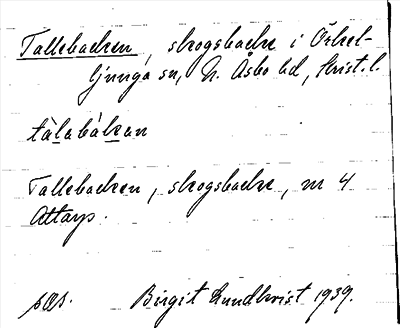 Tallebacken, skogsbacke i Örkel-
ljunga sn, N. Åsbo hd, Krist. l.
tàlabákan
Tallebacken, skogsbacke, m 4
Attarp.
Birgit Lundkvist 1939.